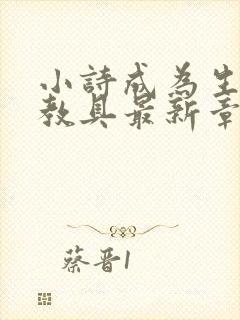 小詩成為生
教具最新章
蔡晋1